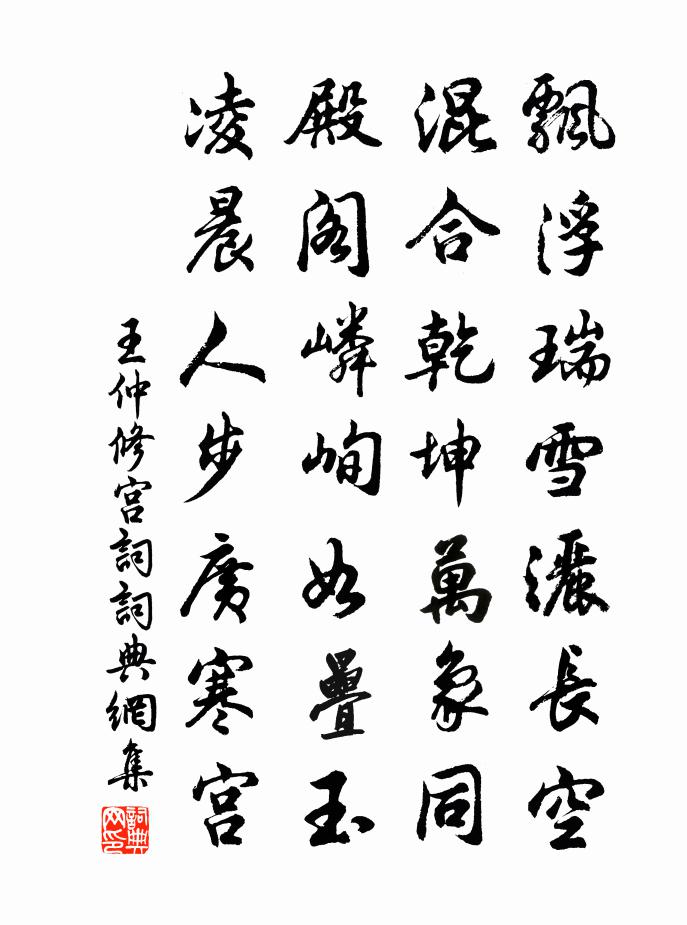 飄浮瑞雪灑長空
混合乾坤萬象同
殿閣嶙峋如疊玉
凌晨人步廣寒宮
王仲修宮詞詞典網集
詞典网印